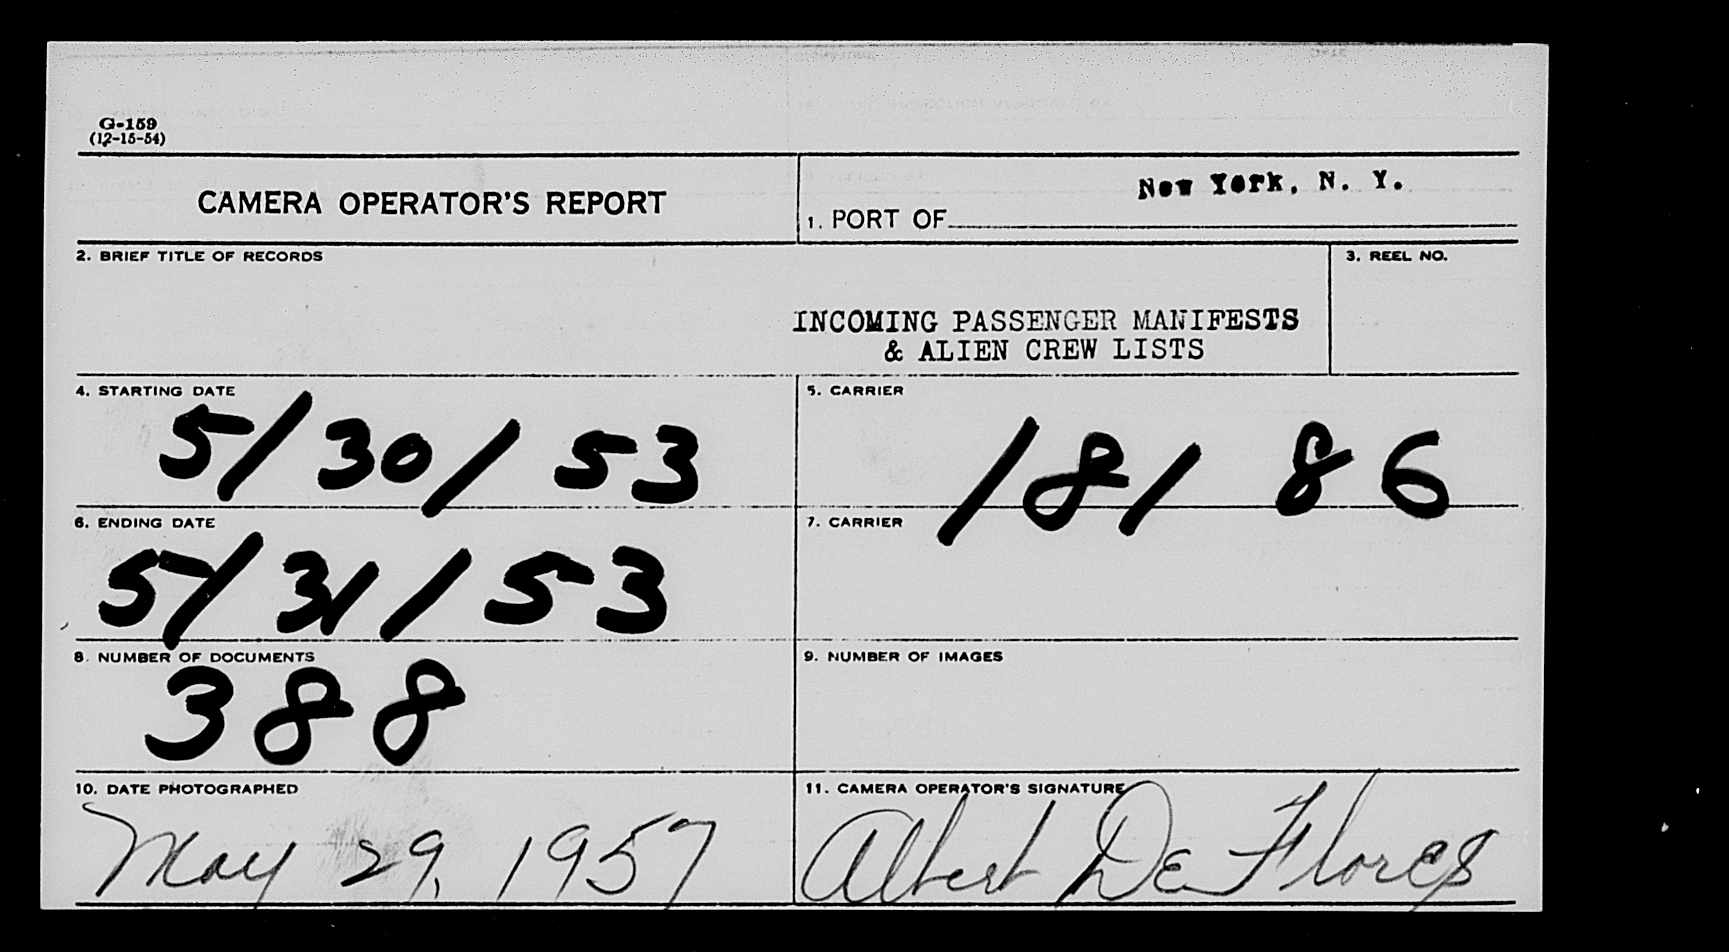 G-159
(12-15-54)
CAMERA OPERATOR'S REPORT
1. PORT OF New York, N. Y.
2. BRIEF TITLE OF RECORDS
3. REEL NO.
INCOMING PASSENGER MANIFESTS
& ALIEN CREW LISTS
4. STARTING DATE
5/30/53
5. CARRIER
18186
6. ENDING DATE
5/31/53
7. CARRIER
8. NUMBER OF DOCUMENTS
388
9. NUMBER OF IMAGES
10. DATE PHOTOGRAPHED
May 29, 1957
11. CAMERA OPERATOR'S SIGNATURE
Albert De Flores